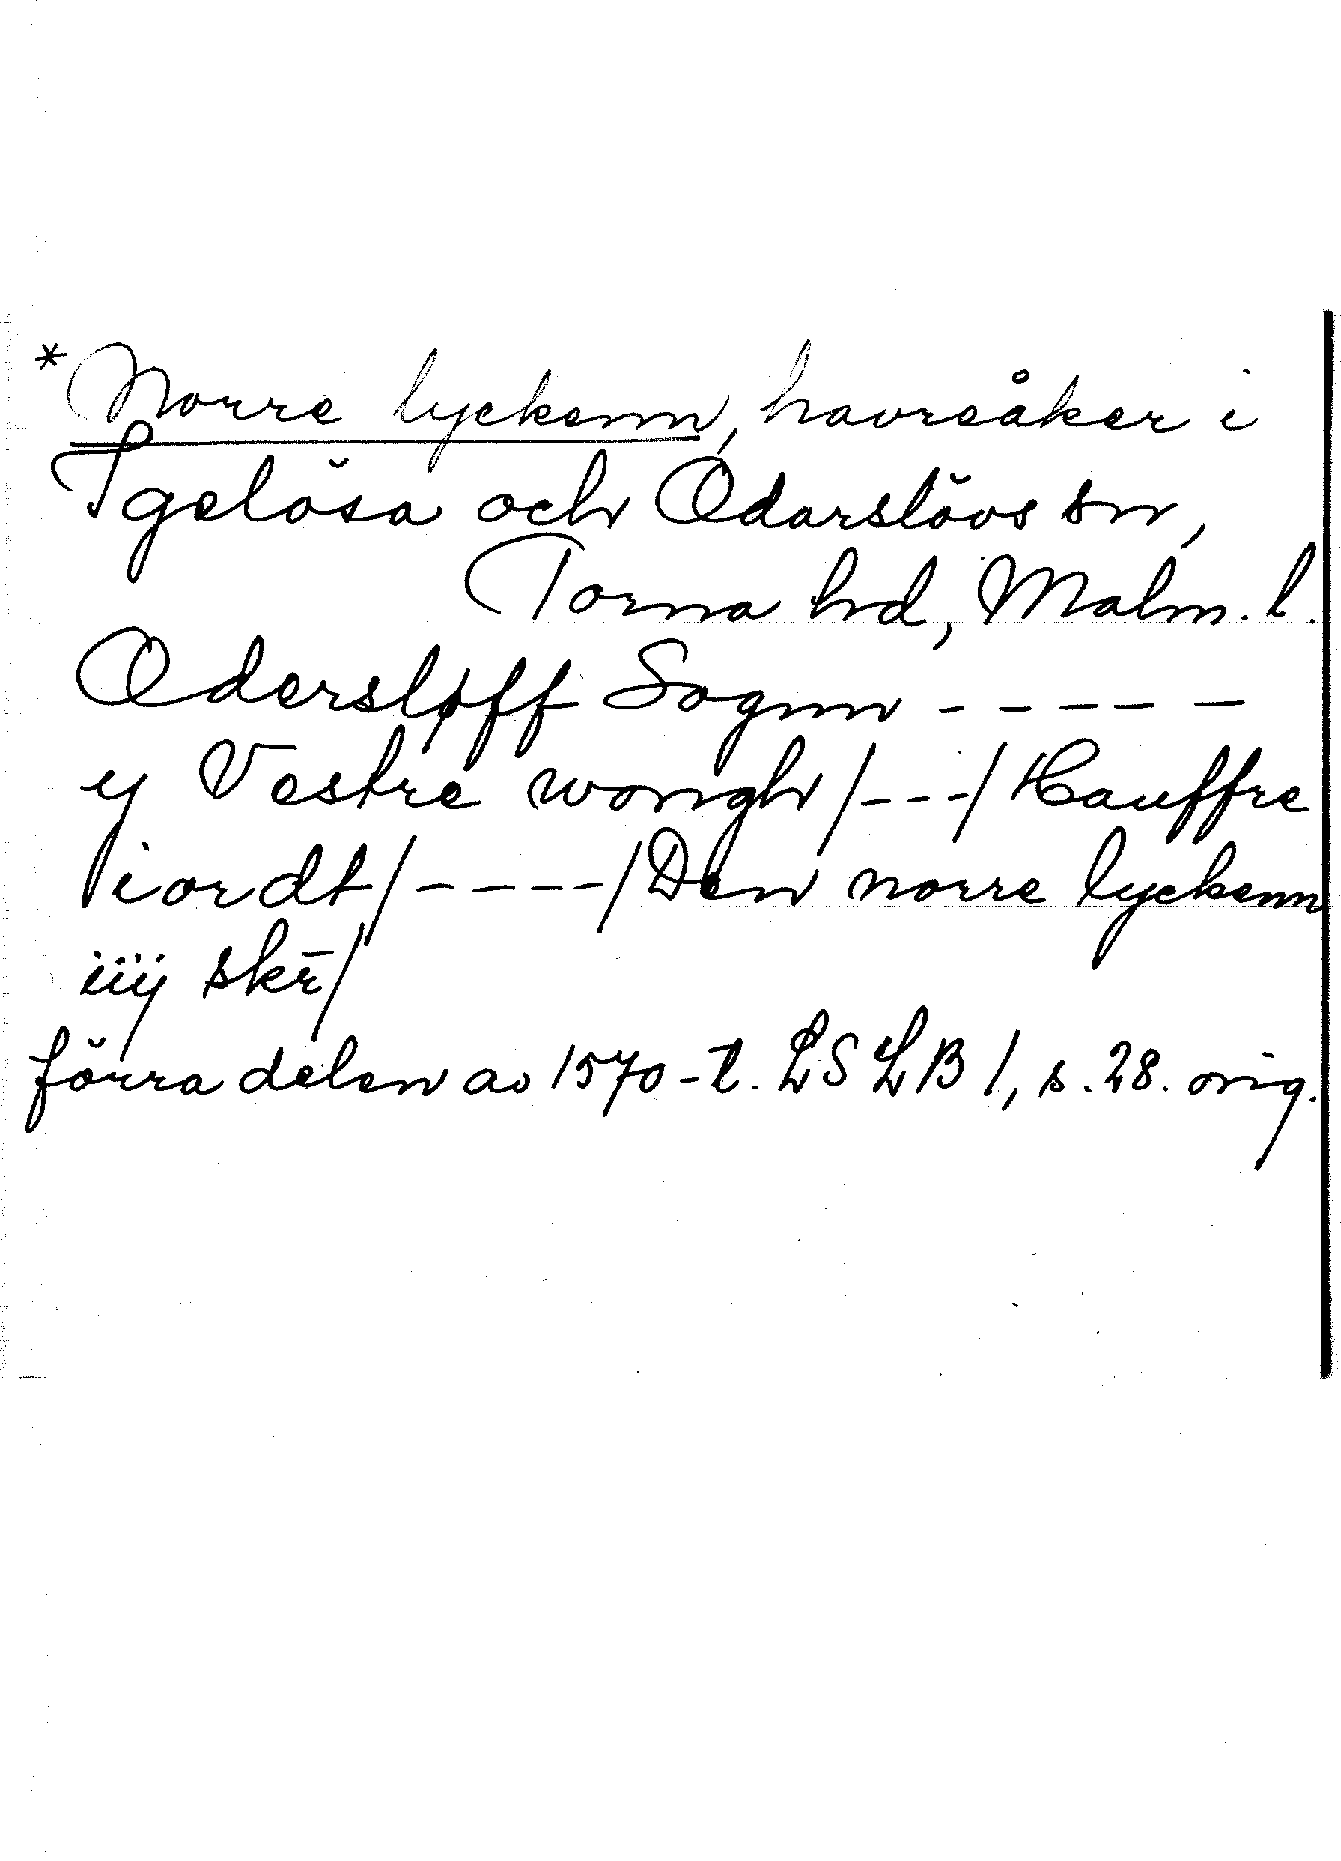 *Norre lyckenn, havreåker i
Igelösa och Odarslövs sn,
Torna hd, Malm. l.
Odersløff Sognn - - - - -
y Vestre wongh/---/Hauffre
iordt/----/Den norre lyckenn
iiij skr̄/
förra delen av 1570-t. LSLB 1, s. 28. orig.